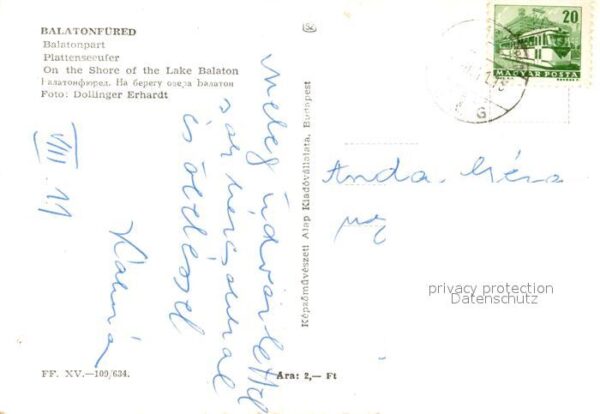 BALATONFÜRED
Balatonpart
Plattenseeufer
On the Shore of the Lake Balaton
Балатонфюред. На берегу озера Балатон
Foto: Dollinger Erhardt
VIII. 11
Meleg üdvözlettel
sok
és öleléssel
Kálmán
FF. XV.—109/634.
Képzőművészeti Alap Kiadóvállalata, Budapest
Ara: 2,— Ft
20
MAGYAR POSTA
G
Anda Géza
privacy protection
Datenschutz